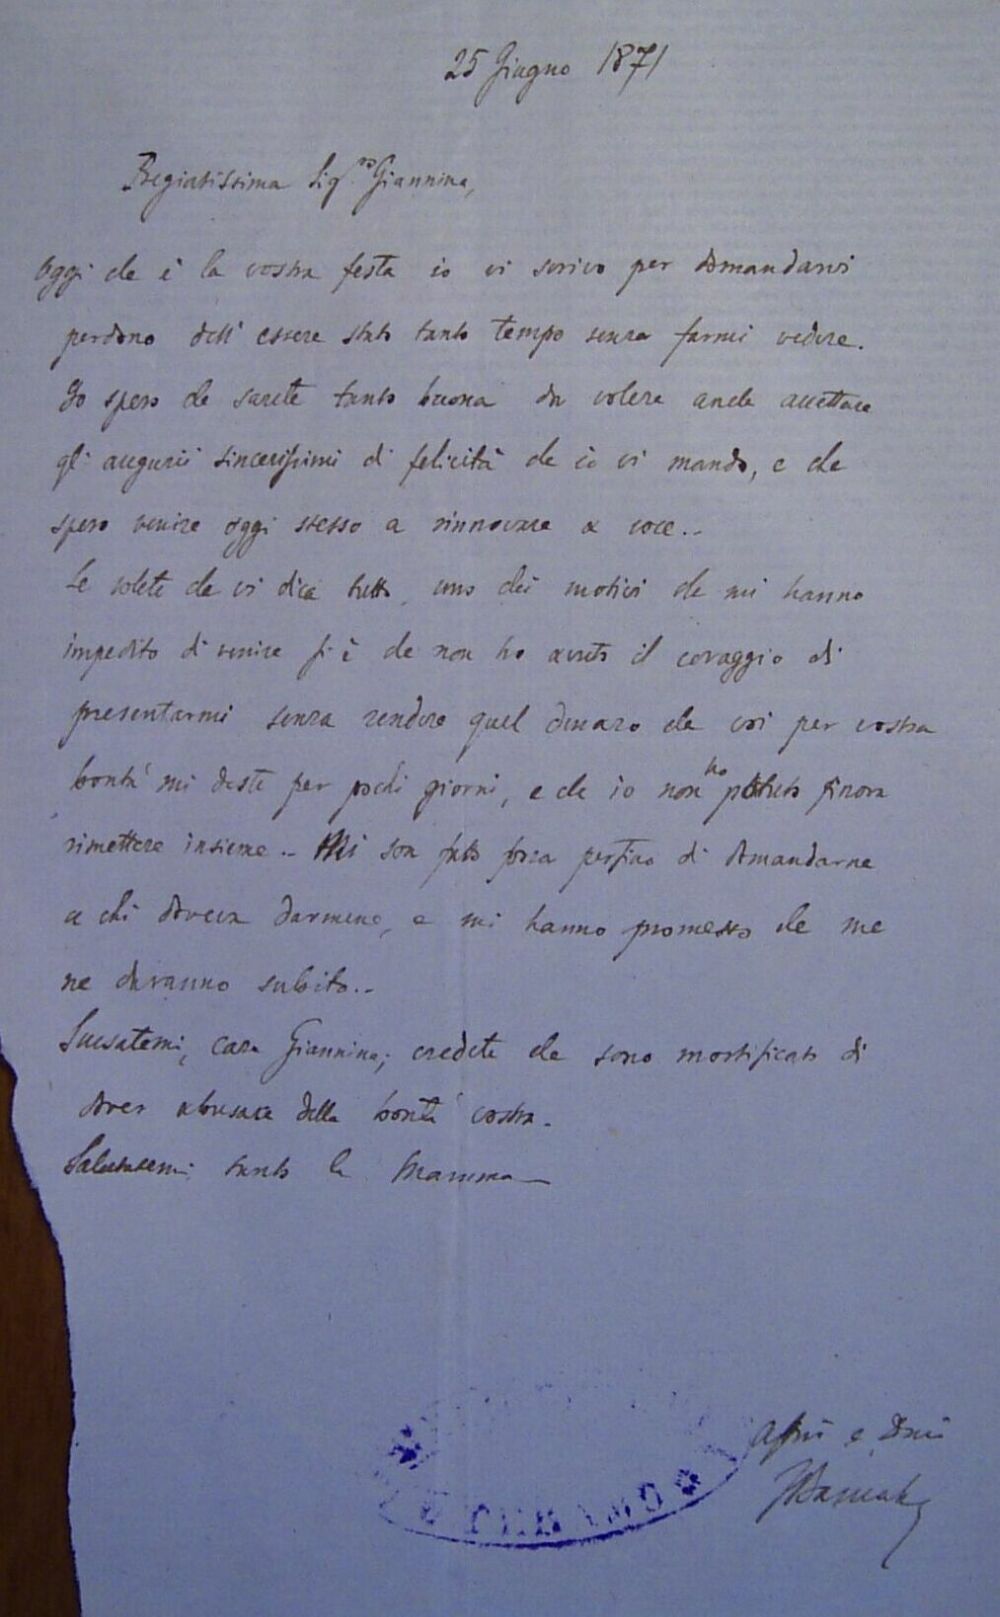 25 Giugno 1871
Pregiatissima Sig.ra Giannina,
Oggi che è la vostra festa io vi scrivo per domandarvi
perdono dell' essere stato tanto tempo senza farmi vedere.
Io spero che sarete tanto buona da volere anche accettare
gli augurii sincerissimi di felicità che io vi mando, e che
spero venire oggi stesso a rinnovare a voce..
Se volete che vi dica tutto, uno dei motivi che mi hanno
impedito di venire si è che non ho avuto il coraggio di
presentarmi senza rendere quel denaro che voi per vostra
bontà mi deste per pochi giorni, e che io non ho potuto finora
rimettere insieme.. Mi son fatto forza perfino di domandarne
a chi doveva darmene, e mi hanno promesso che me
ne daranno subito..
Scusatemi, cara Giannina; credete che sono mortificato di
dover abusare della bontà vostra.
Salutatemi tanto la Mamma—